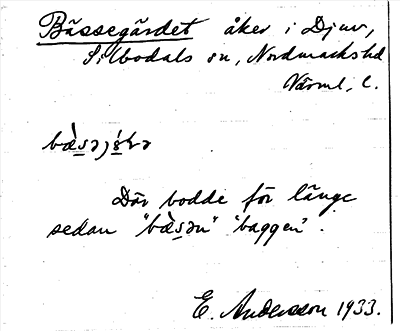 Bässegärdet åker i Djuv,
Silbodals sn, Nordmarks hd
Värml, l.
Där bodde för länge
sedan "bæ̀s̱ən" "baggen".
E. Andersson 1933.